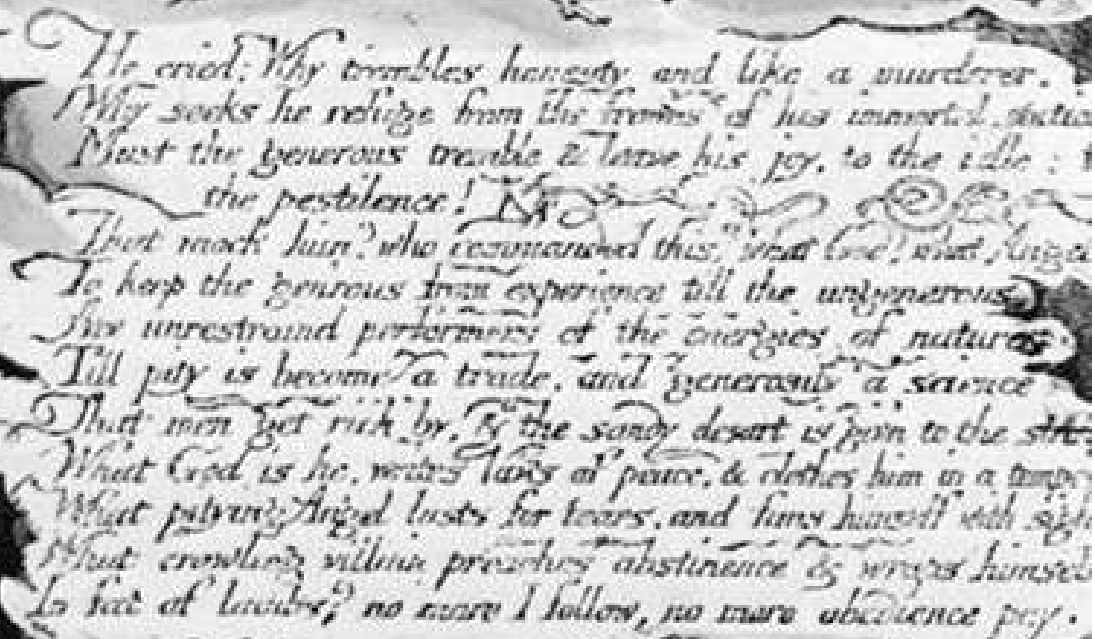 He cried: Why trembles honesty and like a murderer,
Why seeks he refuge from the frowns of his immortal statio
Must the generous tremble & leave his joy, to the idle: t
the pestilence!
That mock him? who commanded this? what God? what Angel
To keep the genrous from experience till the ungenerous
Are unrestraind performers of the energies of nature;
Till pity is become a trade, and generosity a science
That men get rich by, & the sandy desart is givn to the
What God is he, writes laws of peace, & clothes him in a tempe
What pitying Angel lusts for tears, and fans himself with sigh
What crawling villain preaches abstinence & wraps himsel
In fat of lambs? no more I follow, no more obedience pay.